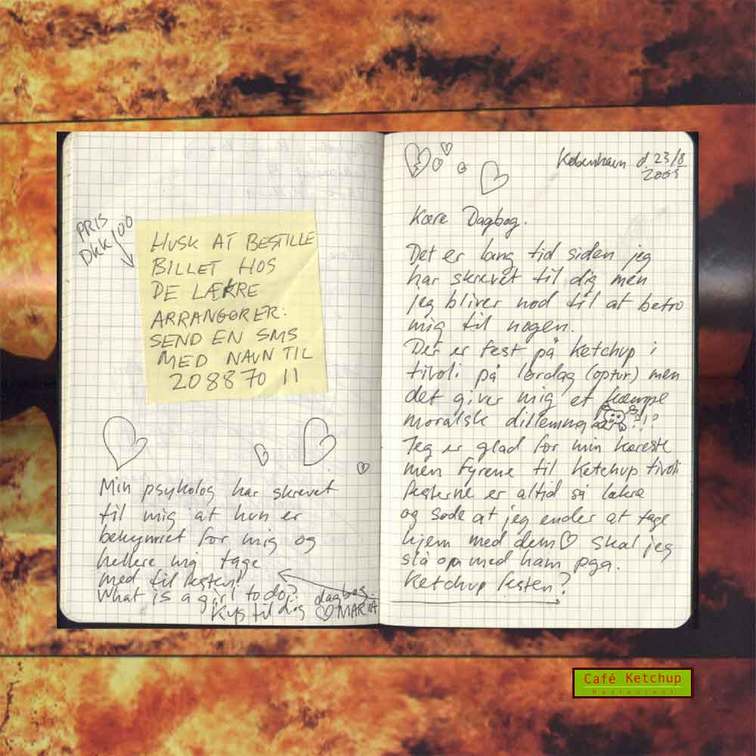 PRIS
DKK 100
HUSK AT BESTILLE
BILLET HOS
DE LÆKRE
ARRANGØRER:
SEND EN SMS
MED NAVN TIL
208870 11
Min psykolog har skrevet
til mig at hun er
bekymret for mig og
hellere mig tage
med til festen!
What is a girl to do?
Kys til dig dagbog
MARIA
København d. 23/8
Kære Dagbog.
Det er lang tid siden jeg
har skrevet til dig men
jeg bliver nød til at betro
mig til nogen.
Der er fest på Ketchup i
tivoli på lørdag (optur) men
det giver mig et kæmpe
moralsk dillemna !?
Jeg er glad for min kæreste
men fyrene til Ketchup tivoli
festerne er altid så lækre
og søde at jeg ender at tage
hjem med dem skal jeg
slå op med ham pga.
Ketchup festen?
Café Ketchup